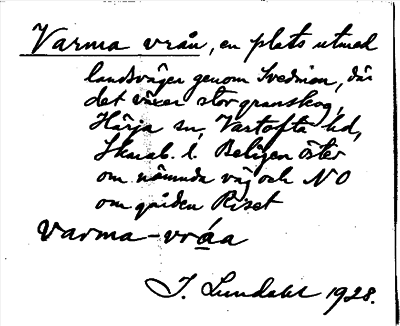 Varma vrån, en plats utmed
landsväger genom Svedmon, där
det växer storgranskog,
Härja sn, Vartofta hd,
Skarab. l. Belägen öster
om nämnda väg och NO
om gården Riset
Varma-vråa
J. Lundahl 1928.